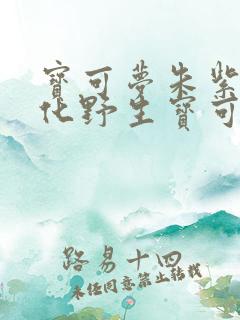 寶可夢朱紫
化野生寶可
路易十四
未經同意禁止轉載